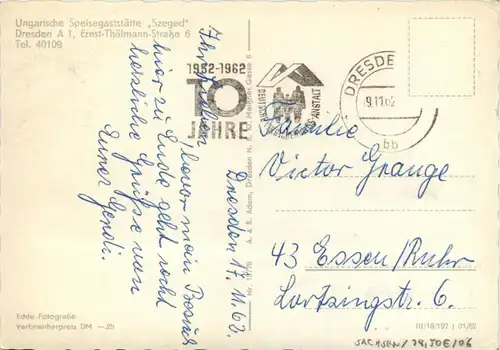 Ungarische Speisegaststätte „Szeged“
Dresden A 1, Ernst-Thälmann-Straße 6
Tel. 40109
1952-1962
10
JAHRE
DEUTSCHE
ANSTALT
DRESDE
9.11.62
bb
Dresden 17. 11. 62.
Ihr Lieben,
bevor mein Besuch
hier zu Ende geht noch
herzliche Grüße von
Eurer Gerdi.
Familie
Victor Grange
43 Essen/Ruhr
Lortzingstr. 6.
A. & R. Adam, Dresden N
Echte Fotografie
Verbraucherpreis DM —.25
III/18/197 | 01/62
SACHSEN/ 24 JOE/06